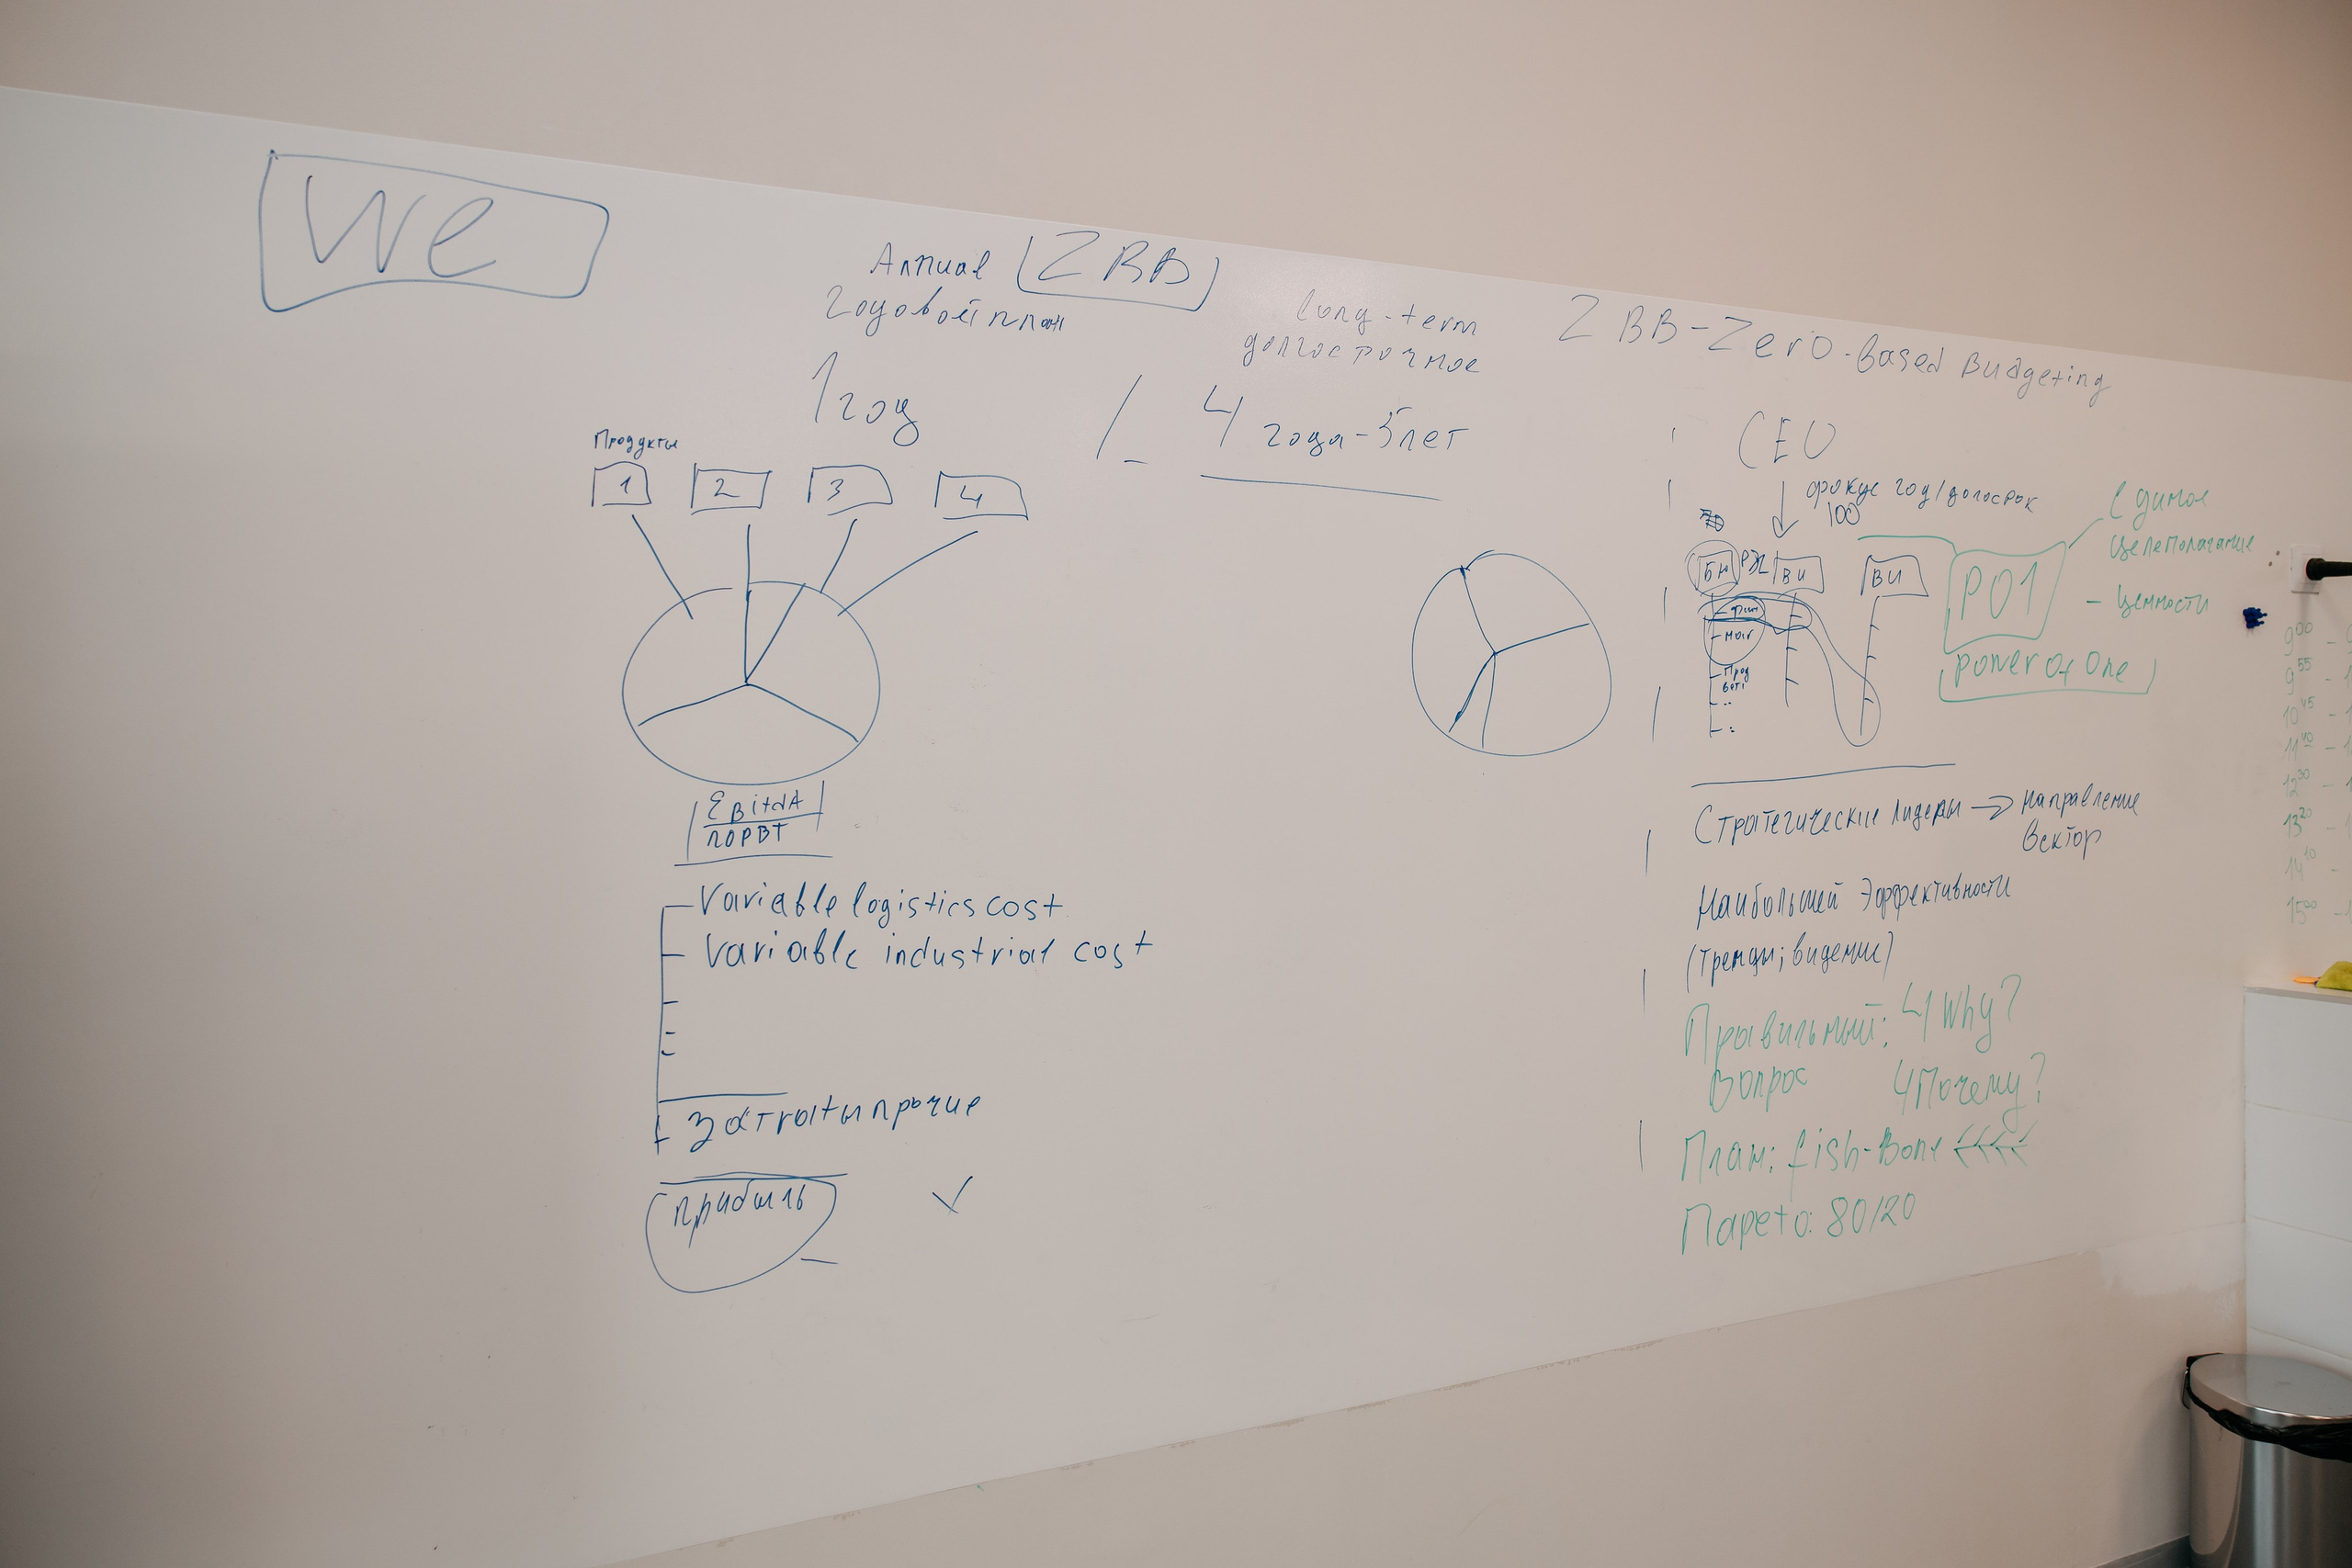 We
Annual ZBB
Годовой план
long-term
долгосрочное
ZBB-Zero-Based Budgeting
1 год
4 года-5 лет
Продукты
1 2 3 4
EBitdA
variable logistics cost
variable industrial cost
Затраты прочие
прибыль
CEO
фокус год/долосрок
100
БН ВИ ВИ
PO1
power of One
Единое
целеполагание
- Ценности
Стратегические лидеры → направление
Вектор
Наибольшей Эффективности
(тренды; видение)
Правильный: 4 Why?
Вопрос 4 Почему?
План: fish-Bone
Парето: 80/20
9 00 -
9 55 -
10 45 -
12 30
13 20
14 10 -
15 00 -